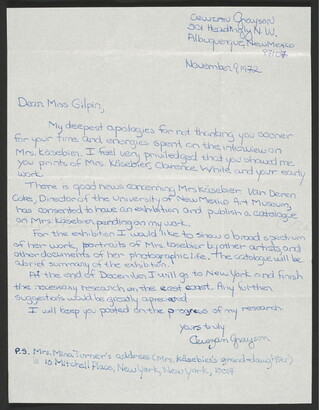 Grayson
301 Headingly N.W.
Albuquerque, New Mexico
87107
November 9, 1972
Dear Miss Gilpin,
My deepest apologies for not thanking you sooner
for your time and energies spent on the interview on
Mrs. Käsebier. I feel very priviledged that you showed me
you prints of Mrs. Käsebier, Clarence White and your early
work.
There is good news concerning Mrs Käsebier. Van Deren
Coke, Director of the University of New Mexico Art Museum,
has consented to have an exhibition and publish a catalogue
on Mrs. Käsebier, pending on my work.
For the exhibition I would like to show a broad spectrum
of her work, portraits of Mrs. Käsebier by other artists and
other documents of her photographic life. The catalogue will be
a brief summary of the exhibition.
At the end of December I will go to New York and finish
the necessary research on the east coast. Any further
suggestions would be greatly
I will keep you posted on the progress of my research.
Yours truly
Grayson
P.S. Mrs. Mina Turner's address (Mrs. Käsebier's grand-daughter)
is 15 Mitchell Place, New York, New York,